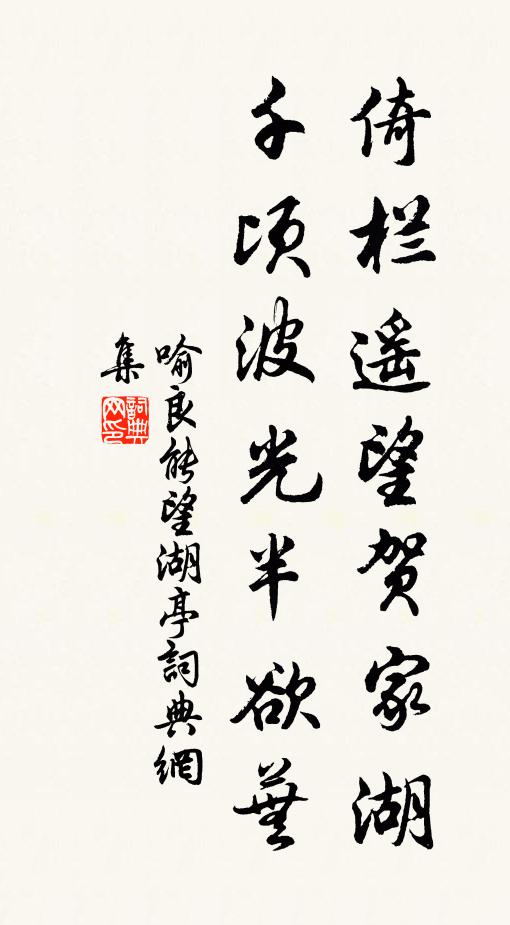 倚栏遥望贺家湖
千顷波光半欲蕪
喻良能望湖亭詞典網
集
詞典
网印